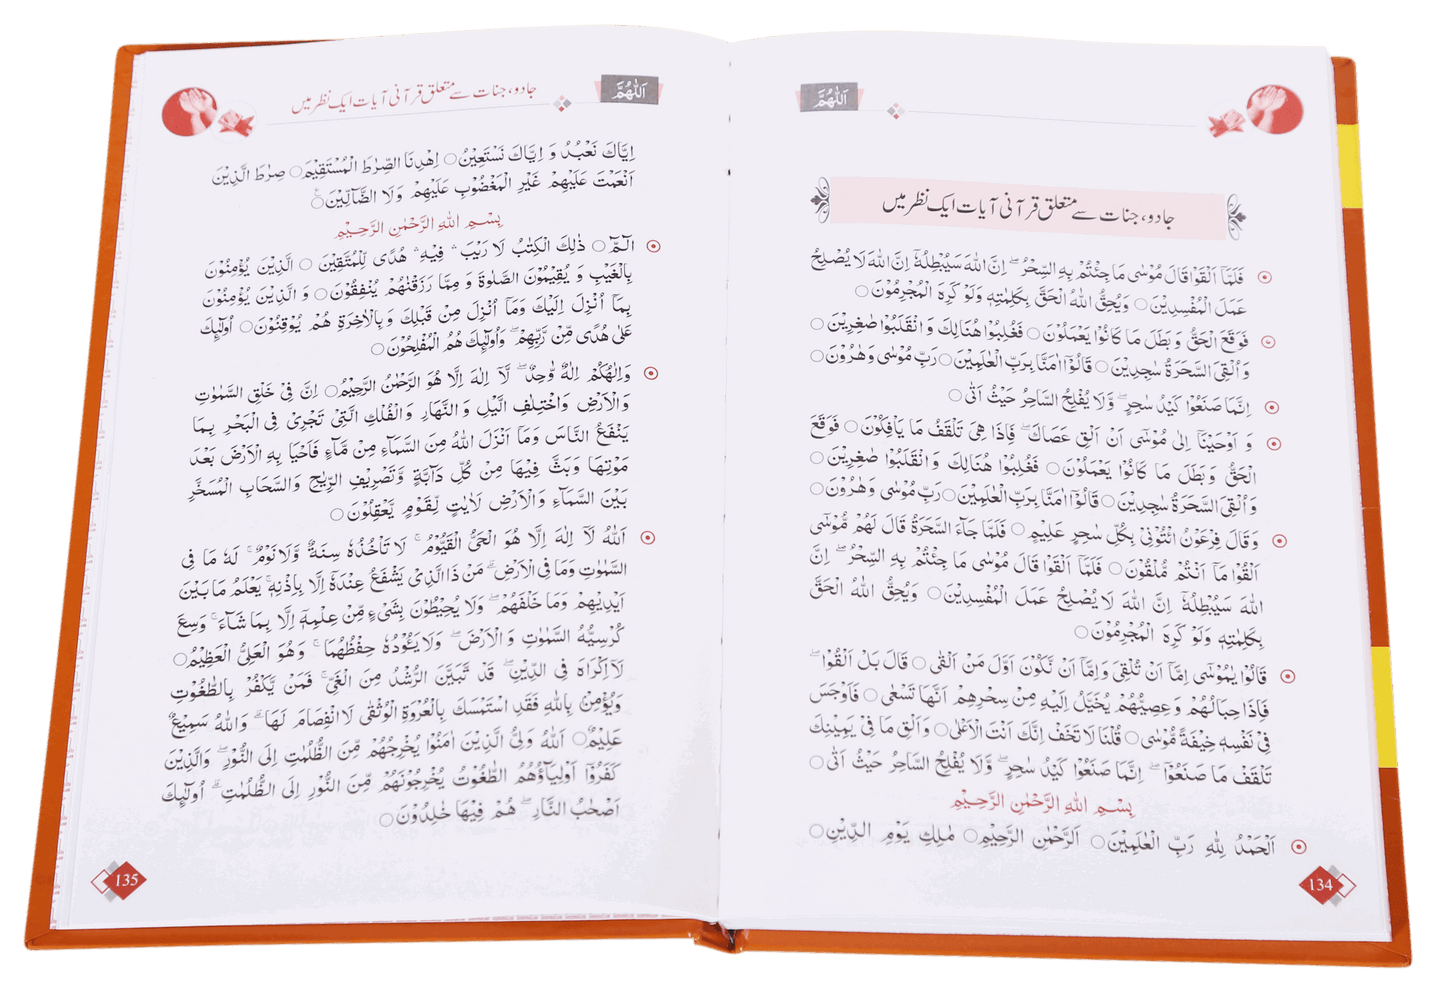 اَللّٰهُمَّ
جادو، جنات سے متعلق قرآنی آیات ایک نظر میں
فَلَمَّاۤ اَلْقَوْا قَالَ مُوْسٰی مَا جِئْتُمْ بِهِ السِّحْرُ ؕ اِنَّ اللّٰهَ سَیُبْطِلُهٗ ؕ اِنَّ اللّٰهَ لَا یُصْلِحُ
عَمَلَ الْمُفْسِدِیْنَ ○ وَیُحِقُّ اللّٰهُ الْحَقَّ بِكَلِمٰتِهٖ وَلَوْ كَرِهَ الْمُجْرِمُوْنَ ○
فَوَقَعَ الْحَقُّ وَبَطَلَ مَا كَانُوْا یَعْمَلُوْنَ ○ فَغُلِبُوْا هُنَالِكَ وَانْقَلَبُوْا صٰغِرِیْنَ ○
وَاُلْقِیَ السَّحَرَةُ سٰجِدِیْنَ ○ قَالُوْۤا اٰمَنَّا بِرَبِّ الْعٰلَمِیْنَ ○ رَبِّ مُوْسٰی وَهٰرُوْنَ ○
اِنَّمَا صَنَعُوْا كَیْدُ سٰحِرٍ ؕ وَلَا یُفْلِحُ السَّاحِرُ حَیْثُ اَتٰی ○
وَ اَوْحَیْنَاۤ اِلٰی مُوْسٰۤی اَنْ اَلْقِ عَصَاكَ ۚ فَاِذَا هِیَ تَلْقَفُ مَا یَاْفِكُوْنَ ○ فَوَقَعَ
الْحَقُّ وَبَطَلَ مَا كَانُوْا یَعْمَلُوْنَ ○ فَغُلِبُوْا هُنَالِكَ وَانْقَلَبُوْا صٰغِرِیْنَ ○
وَاُلْقِیَ السَّحَرَةُ سٰجِدِیْنَ ○ قَالُوْۤا اٰمَنَّا بِرَبِّ الْعٰلَمِیْنَ ○ رَبِّ مُوْسٰی وَهٰرُوْنَ ○
وَقَالَ فِرْعَوْنُ ائْتُوْنِیْ بِكُلِّ سٰحِرٍ عَلِیْمٍ ○ فَلَمَّا جَآءَ السَّحَرَةُ قَالَ لَهُمْ مُّوْسٰۤی
اَلْقُوْا مَاۤ اَنْتُمْ مُّلْقُوْنَ ○ فَلَمَّاۤ اَلْقَوْا قَالَ مُوْسٰی مَا جِئْتُمْ بِهِ السِّحْرُ ؕ اِنَّ
اللّٰهَ سَیُبْطِلُهٗ ؕ اِنَّ اللّٰهَ لَا یُصْلِحُ عَمَلَ الْمُفْسِدِیْنَ ○ وَیُحِقُّ اللّٰهُ الْحَقَّ
بِكَلِمٰتِهٖ وَلَوْ كَرِهَ الْمُجْرِمُوْنَ ○
قَالُوْا یٰمُوْسٰۤی اِمَّاۤ اَنْ تُلْقِیَ وَاِمَّاۤ اَنْ نَّكُوْنَ اَوَّلَ مَنْ اَلْقٰی ○ قَالَ بَلْ اَلْقُوْا ۚ
فَاِذَا حِبَالُهُمْ وَعِصِیُّهُمْ یُخَیَّلُ اِلَیْهِ مِنْ سِحْرِهِمْ اَنَّهَا تَسْعٰی ○ فَاَوْجَسَ
فِیْ نَفْسِهٖ خِیْفَةً مُّوْسٰی ○ قُلْنَا لَا تَخَفْ اِنَّكَ اَنْتَ الْاَعْلٰی ○ وَاَلْقِ مَا فِیْ یَمِیْنِكَ
تَلْقَفْ مَا صَنَعُوْا ؕ اِنَّمَا صَنَعُوْا كَیْدُ سٰحِرٍ ؕ وَلَا یُفْلِحُ السَّاحِرُ حَیْثُ اَتٰی ○
بِسْمِ اللّٰهِ الرَّحْمٰنِ الرَّحِیْمِ
اَلْحَمْدُ لِلّٰهِ رَبِّ الْعٰلَمِیْنَ ○ الرَّحْمٰنِ الرَّحِیْمِ ○ مٰلِكِ یَوْمِ الدِّیْنِ ○
134
اَللّٰهُمَّ
جادو، جنات سے متعلق قرآنی آیات ایک نظر میں
اِیَّاكَ نَعْبُدُ وَ اِیَّاكَ نَسْتَعِیْنُ ○ اِهْدِنَا الصِّرٰطَ الْمُسْتَقِیْمَ ○ صِرٰطَ الَّذِیْنَ
اَنْعَمْتَ عَلَیْهِمْ غَیْرِ الْمَغْضُوْبِ عَلَیْهِمْ وَلَا الضَّآلِّیْنَ ○
بِسْمِ اللّٰهِ الرَّحْمٰنِ الرَّحِیْمِ
الٓمّٓ ○ ذٰلِكَ الْكِتٰبُ لَا رَیْبَ ۛ فِیْهِ ۛ هُدًی لِّلْمُتَّقِیْنَ ○ الَّذِیْنَ یُؤْمِنُوْنَ
بِالْغَیْبِ وَ یُقِیْمُوْنَ الصَّلٰوةَ وَ مِمَّا رَزَقْنٰهُمْ یُنْفِقُوْنَ ○ وَ الَّذِیْنَ یُؤْمِنُوْنَ
بِمَاۤ اُنْزِلَ اِلَیْكَ وَمَاۤ اُنْزِلَ مِنْ قَبْلِكَ وَبِالْاٰخِرَةِ هُمْ یُوْقِنُوْنَ ○ اُولٰٓئِكَ
عَلٰی هُدًی مِّنْ رَّبِّهِمْ ۗ وَاُولٰٓئِكَ هُمُ الْمُفْلِحُوْنَ ○
وَاِلٰهُكُمْ اِلٰهٌ وّٰحِدٌ ۚ لَاۤ اِلٰهَ اِلَّا هُوَ الرَّحْمٰنُ الرَّحِیْمُ ○ اِنَّ فِیْ خَلْقِ السَّمٰوٰتِ
وَالْاَرْضِ وَاخْتِلٰفِ الَّیْلِ وَالنَّهَارِ وَالْفُلْكِ الَّتِیْ تَجْرِیْ فِی الْبَحْرِ بِمَا
یَنْفَعُ النَّاسَ وَمَاۤ اَنْزَلَ اللّٰهُ مِنَ السَّمَآءِ مِنْ مَّآءٍ فَاَحْیَا بِهِ الْاَرْضَ بَعْدَ
مَوْتِهَا وَبَثَّ فِیْهَا مِنْ كُلِّ دَآبَّةٍ وَّتَصْرِیْفِ الرِّیٰحِ وَالسَّحَابِ الْمُسَخَّرِ
بَیْنَ السَّمَآءِ وَالْاَرْضِ لَاٰیٰتٍ لِّقَوْمٍ یَّعْقِلُوْنَ ○
اَللّٰهُ لَاۤ اِلٰهَ اِلَّا هُوَ الْحَیُّ الْقَیُّوْمُ ۚ لَا تَاْخُذُهٗ سِنَةٌ وَّلَا نَوْمٌ ؕ لَهٗ مَا فِی
السَّمٰوٰتِ وَمَا فِی الْاَرْضِ ؕ مَنْ ذَا الَّذِیْ یَشْفَعُ عِنْدَهٗۤ اِلَّا بِاِذْنِهٖ ؕ یَعْلَمُ مَا بَیْنَ
اَیْدِیْهِمْ وَمَا خَلْفَهُمْ ۚ وَلَا یُحِیْطُوْنَ بِشَیْءٍ مِّنْ عِلْمِهٖۤ اِلَّا بِمَا شَآءَ ۚ وَسِعَ
كُرْسِیُّهُ السَّمٰوٰتِ وَ الْاَرْضَ ۚ وَلَا یَـُٔوْدُهٗ حِفْظُهُمَا ۚ وَهُوَ الْعَلِیُّ الْعَظِیْمُ ○
لَاۤ اِكْرَاهَ فِی الدِّیْنِ ۙ قَدْ تَّبَیَّنَ الرُّشْدُ مِنَ الْغَیِّ ۚ فَمَنْ یَّكْفُرْ بِالطَّاغُوْتِ
وَیُؤْمِنْ بِاللّٰهِ فَقَدِ اسْتَمْسَكَ بِالْعُرْوَةِ الْوُثْقٰی لَا انْفِصَامَ لَهَا ؕ وَاللّٰهُ سَمِیْعٌ
عَلِیْمٌ ○ اَللّٰهُ وَلِیُّ الَّذِیْنَ اٰمَنُوْا یُخْرِجُهُمْ مِّنَ الظُّلُمٰتِ اِلَی النُّوْرِ ؕ وَالَّذِیْنَ
كَفَرُوْۤا اَوْلِیٰٓـُٔهُمُ الطَّاغُوْتُ یُخْرِجُوْنَهُمْ مِّنَ النُّوْرِ اِلَی الظُّلُمٰتِ ؕ اُولٰٓئِكَ
اَصْحٰبُ النَّارِ ۚ هُمْ فِیْهَا خٰلِدُوْنَ ○
135